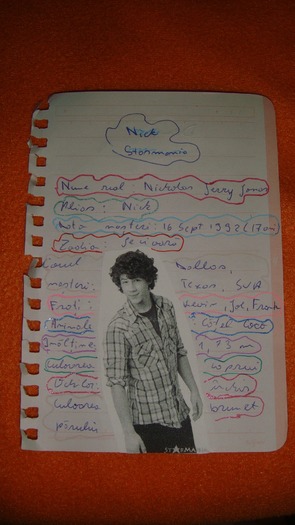 Nick
Nume real: Nickolas Jerry Jonas
Alias: Nick
Data nasterii: 16 Sept 1992 (17 ani)
Zodia: Fecioara
Locul Dallas,
nasterii: Texas, SUA
Frati: Kevin, Joe, Frank
Animale
Inaltime: 1,73 m
Culoarea caprui
Ochilor: inchis
Culoarea brunet
parului